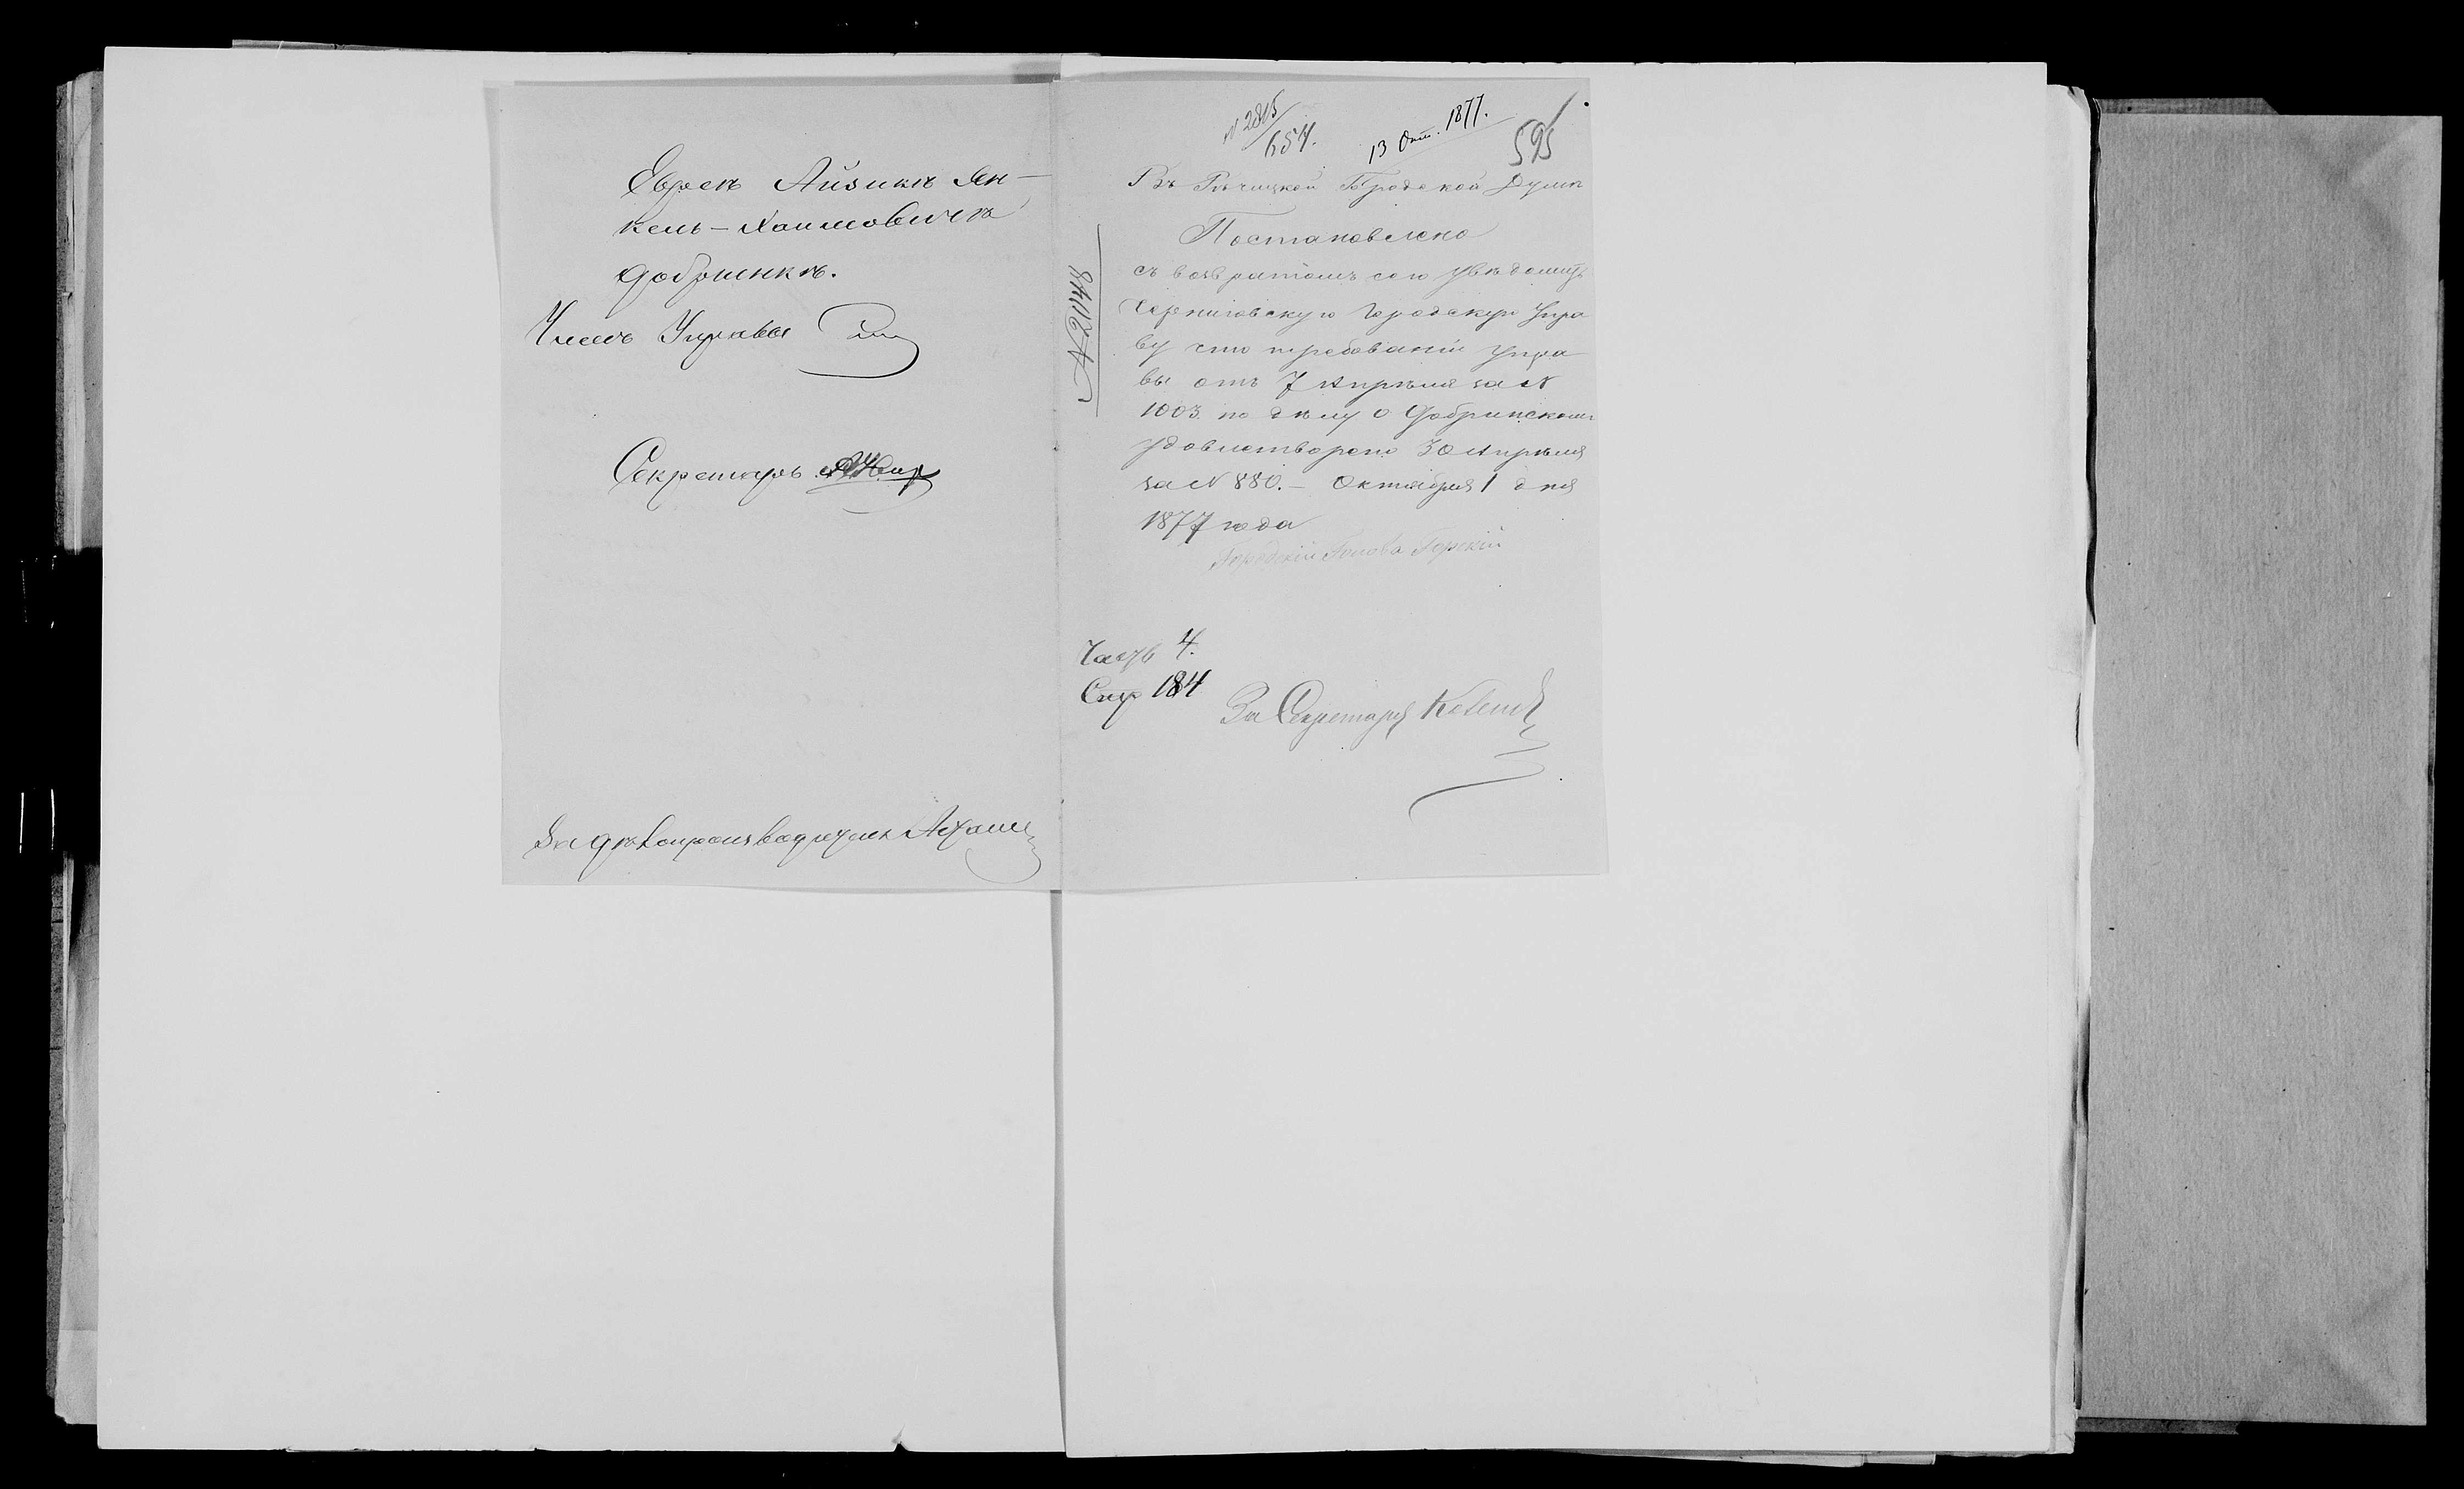 Евреѣ Айзикѣ Ян-
кель-Хаимовичѣ
Добринѣ.
Членъ Управы
Секретарь
За дѣлопроизводителя
№ 2815/657.
13 Окт. 1877.
595
Въ Рѣчицкой Городской Думѣ
Постановлено
съ возвратомъ сего увѣдомить
Черниговскую Городскую Упра
ву что требованіе Упра
вы отъ 7 Апрѣля за №
1003 по дѣлу о Добринскомъ
удовлетворено 30 Апрѣля
за № 880. — Октября 1 дня
1877 года
Городской Голова Горскій
№ 21148
Часть 4.
Стр 184
За Секретаря